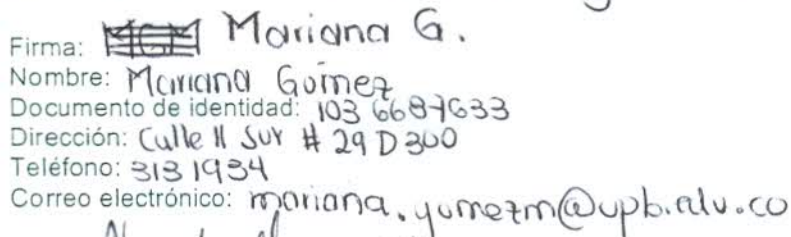 Firma: Mariana G.
Nombre: Mariana Gómez
Documento de identidad: 1036687633
Dirección: Calle 11 Sur # 29 D 300
Teléfono: 313 1934
Correo electrónico: mariana.gomezm@upb.edu.co